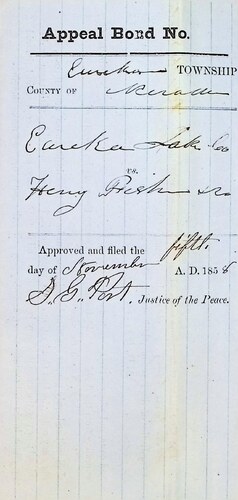 Appeal Bond No.
Eureka TOWNSHIP
COUNTY OF Nevada
Eureka Lake Co
vs.
Henry
Approved and filed the fifth
day of November A. D. 1858
S. G. Post. Justice of the Peace.